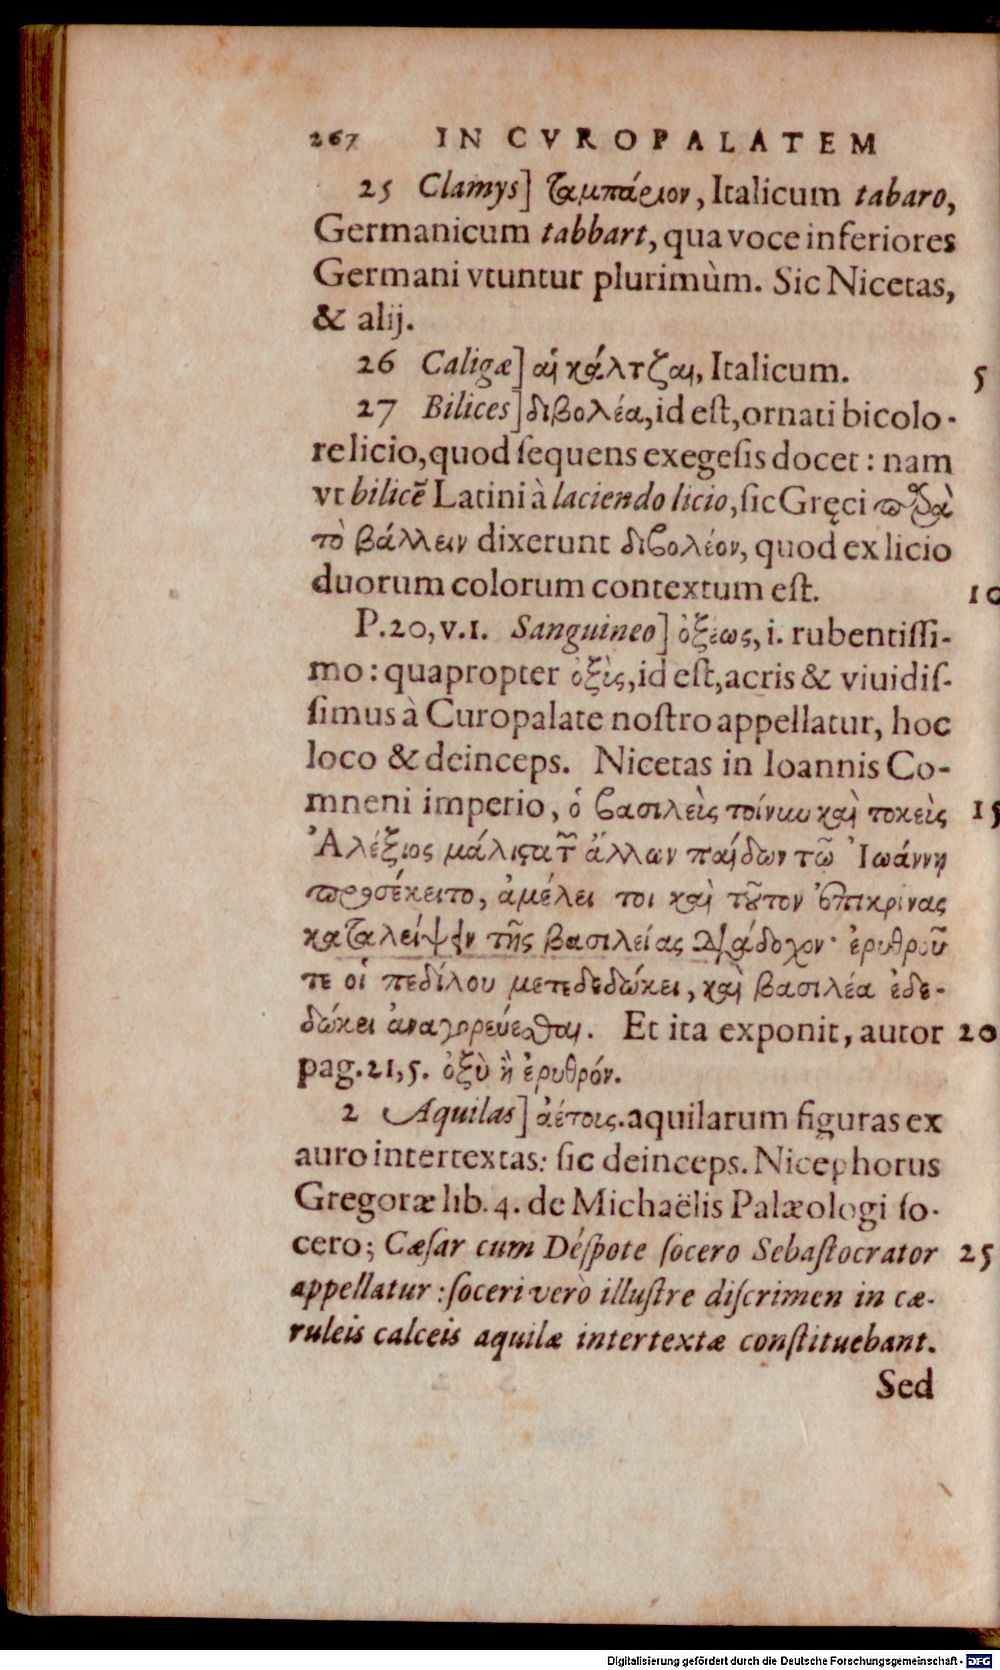 267 IN CVROPALATEM
25 Clamys] ταμπάριον, Italicum tabaro,
Germanicum tabbart, qua voce inferiores
Germani vtuntur plurimùm. Sic Nicetas,
& alij.
26 Caligæ] αἱ κάλτζαι, Italicum. 5
27 Bilices] διβολέα, id eſt, ornati bicolo-
re licio, quod ſequens exegeſis docet: nam
vt bilicẽ Latini à laciendo licio, ſic Gręci παρὰ
τὸ βάλλειν dixerunt διβολέον, quod ex licio
duorum colorum contextum eſt. 10
P.20,v.1. Sanguineo] ὀξέως, i. rubentiſſi-
mo: quapropter ὀξὶς, id eſt, acris & viuidiſ-
ſimus à Curopalate noſtro appellatur, hoc
loco & deinceps. Nicetas in Ioannis Co-
mneni imperio, ὁ βασιλεὶς τοίνυν καὶ τοκεὶς 15
Ἀλέξιος μάλιστα τῶν ἄλλων παίδων τῶ Ἰωάννῃ
προσέκειτο, ἀμέλει τοι καὶ τοῦτον ἐπικρίνας
καταλείψειν τῆς βασιλείας διάδοχον· ἐρυθροῦ
τε οἱ πεδίλου μετεδεδώκει, καὶ βασιλέα ἐδε-
δώκει ἀναγορεύεσθαι. Et ita exponit, autor 20
pag.21,5. ὀξὺ ἢ ἐρυθρόν.
2 Aquilas] ἀέτοις. aquilarum figuras ex
auro intertextas: ſic deinceps. Nicephorus
Gregoræ lib. 4. de Michaëlis Palæologi ſo-
cero; Cæſar cum Déſpote ſocero Sebaſtocrator 25
appellatur: ſoceri verò illuſtre diſcrimen in cæ-
ruleis calceis aquilæ intertextæ conſtituebant.
Sed
Digitalisierung gefördert durch die Deutsche Forschungsgemeinschaft - DFG